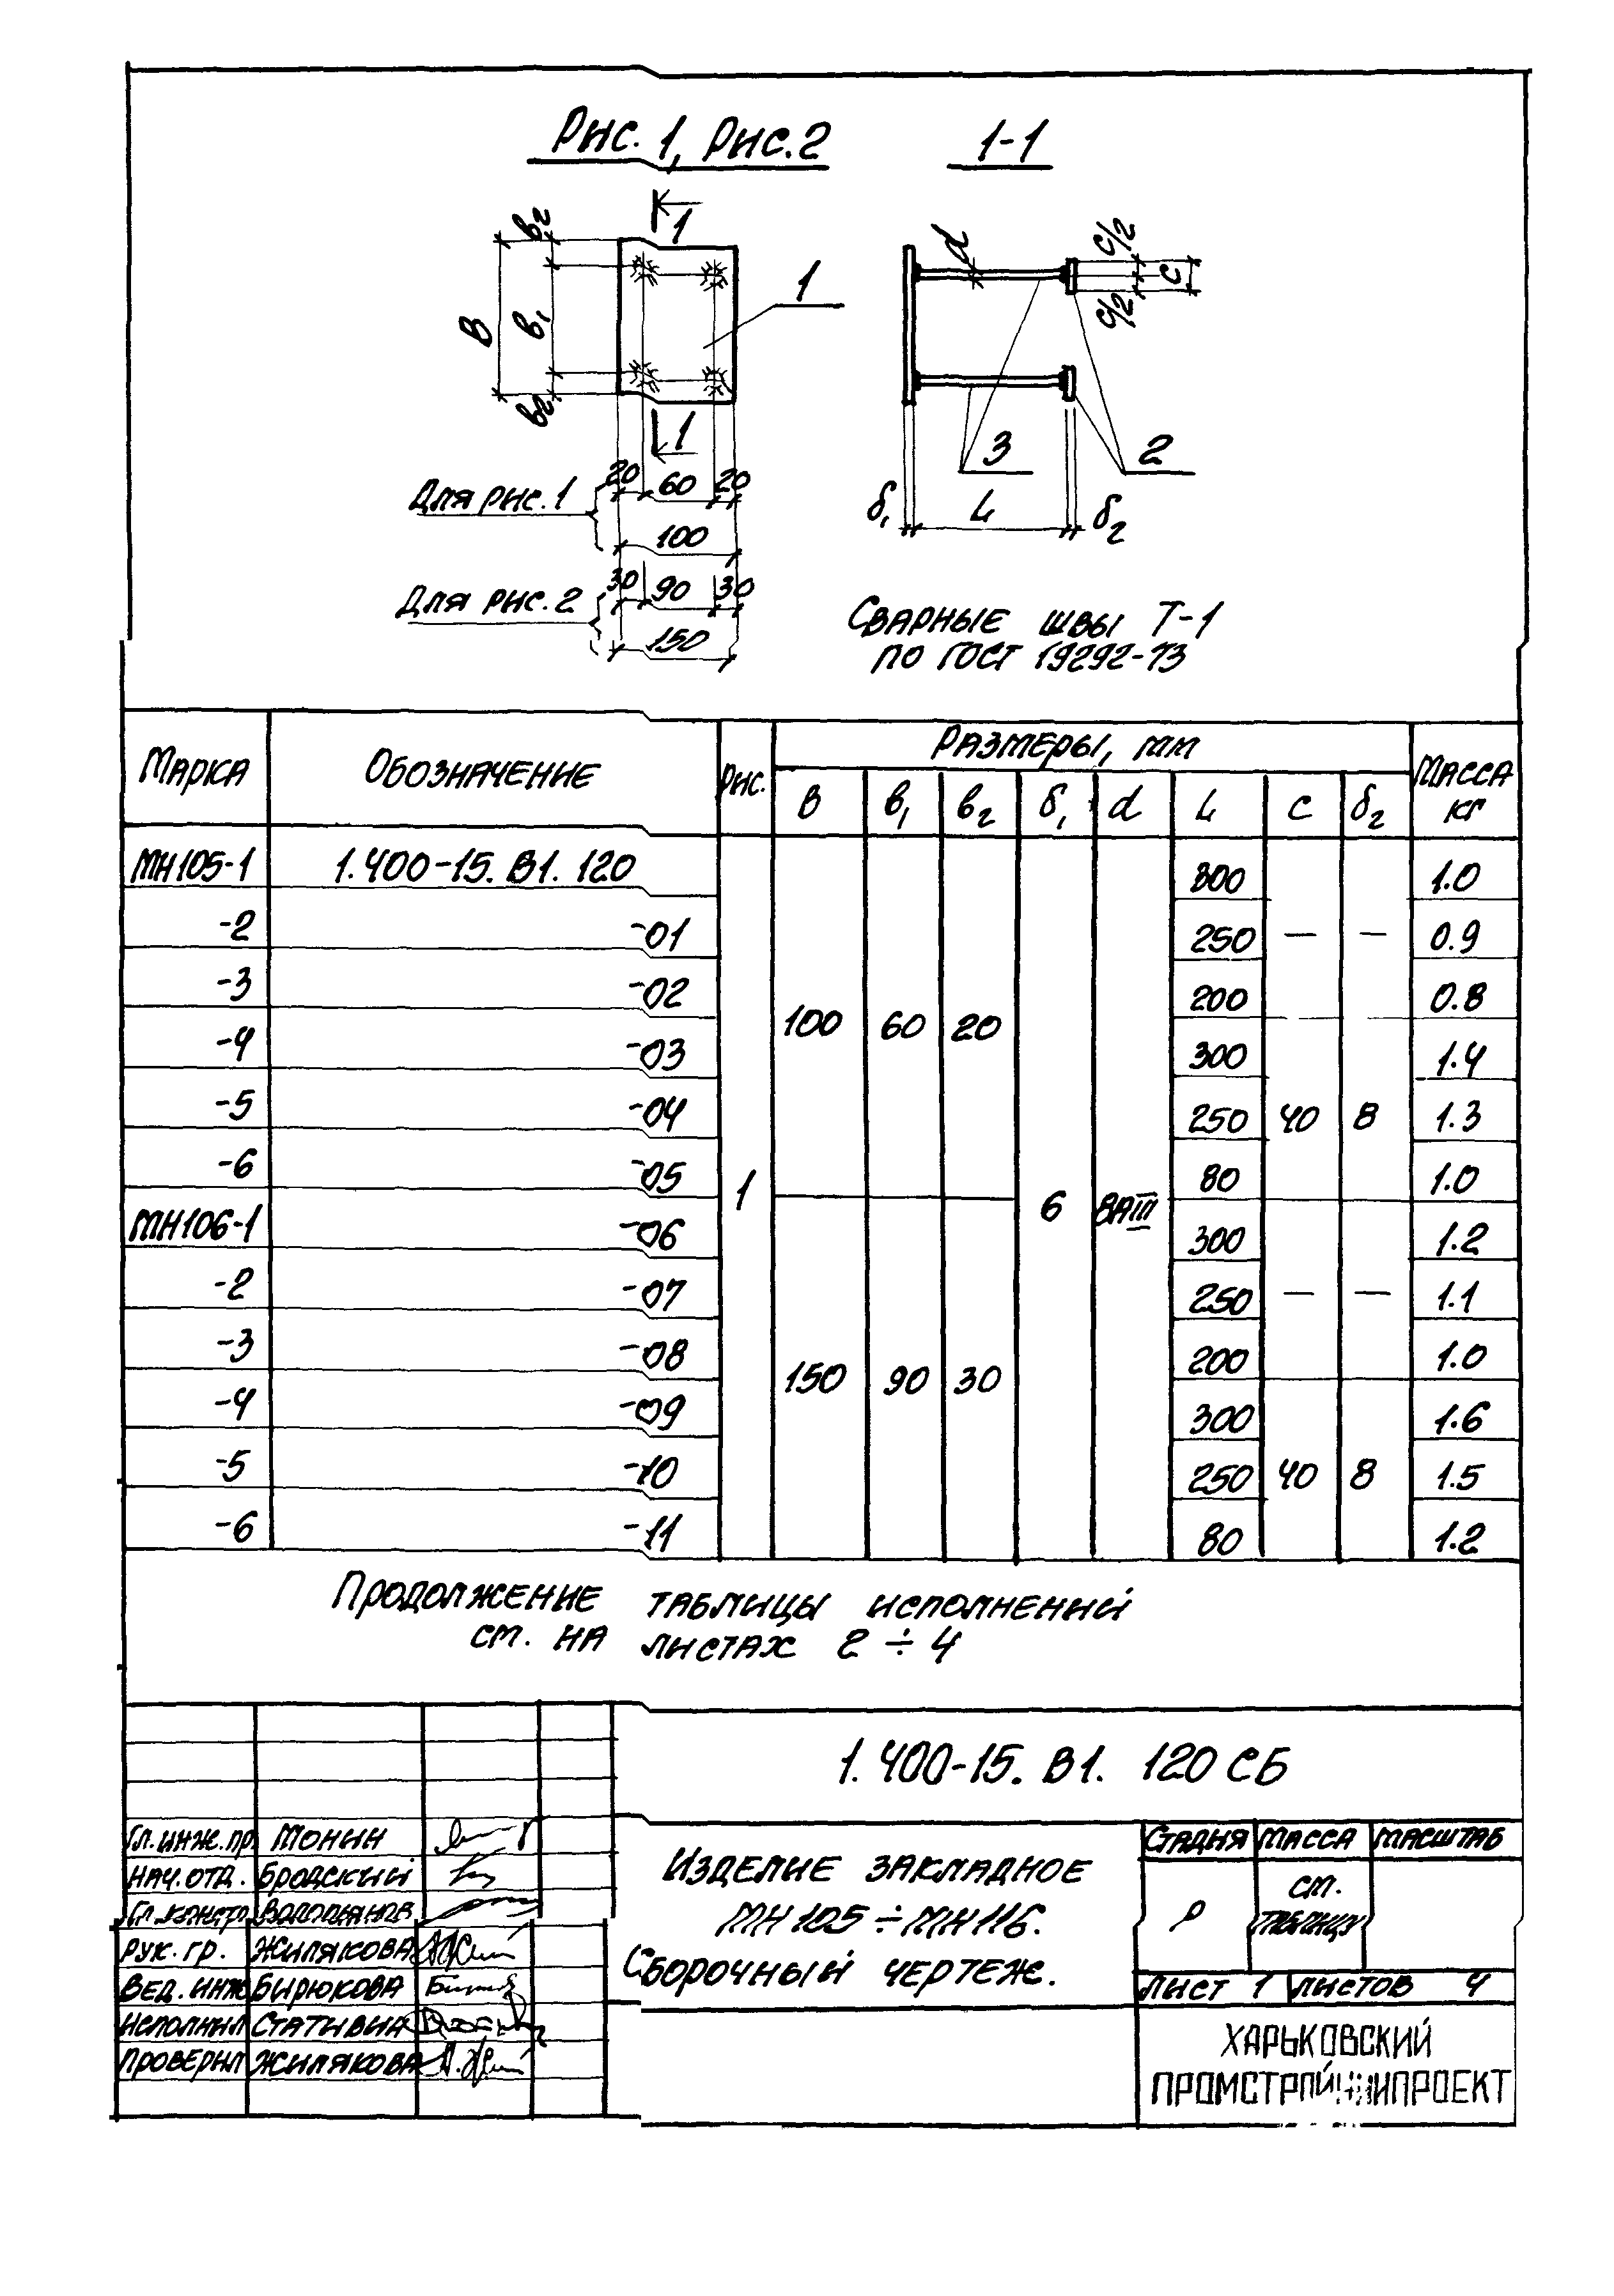 Рис. 1, Рис. 2 1-1
1
1
1
В в1 в2 в2
d с/2 с с/2
3 2
Для рис. 1 20 60 20
100
δ1 L δ2
Для рис. 2 30 90 30
150
Сварные швы Т-1
по ГОСТ 19292-73
Марка Обозначение Рис. Размеры, мм Масса кг
В в1 в2 δ1 d L с δ2
МН105-1 1.400-15. В1. 120 300 1.0
-2 -01 250 — — 0.9
-3 -02 100 60 20 200 0.8
-4 -03 300 1.4
-5 -04 250 40 8 1.3
-6 -05 1 6 8АIII 80 1.0
МН106-1 -06 300 1.2
-2 -07 250 — — 1.1
-3 -08 150 90 30 200 1.0
-4 -09 300 1.6
-5 -10 250 40 8 1.5
-6 -11 80 1.2
Продолжение таблицы исполнений
см. на листах 2 ÷ 4
1.400-15. В1. 120 СБ
Гл. инж. пр. Монин
Нач. отд. Бродский
Гл. констр.
Рук. гр. Жилякова
Вед. инж Бирюкова
Исполнил Стативка
Проверил Жилякова
Изделие закладное
МН 105 ÷ МН 116.
Сборочный чертеж.
Стадия Масса Масштаб
Р см. таблицу
Лист 1 Листов 4
ХАРЬКОВСКИЙ
ПРОМСТРОЙНИИПРОЕКТ